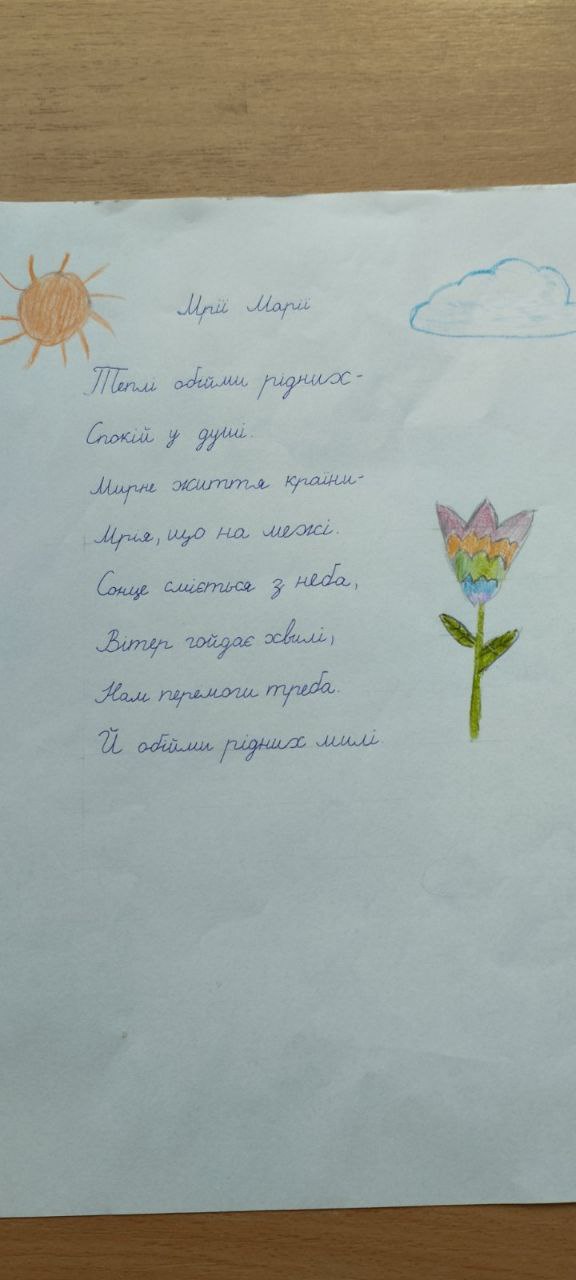 Мрії Марії
Теплі обійми рідних-
Спокій у душі.
Мирне життя країни-
Мрія, що на межі.
Сонце сміється з неба,
Вітер гойдає хвилі,
Нам перемоги треба.
Й обійми рідних милі.